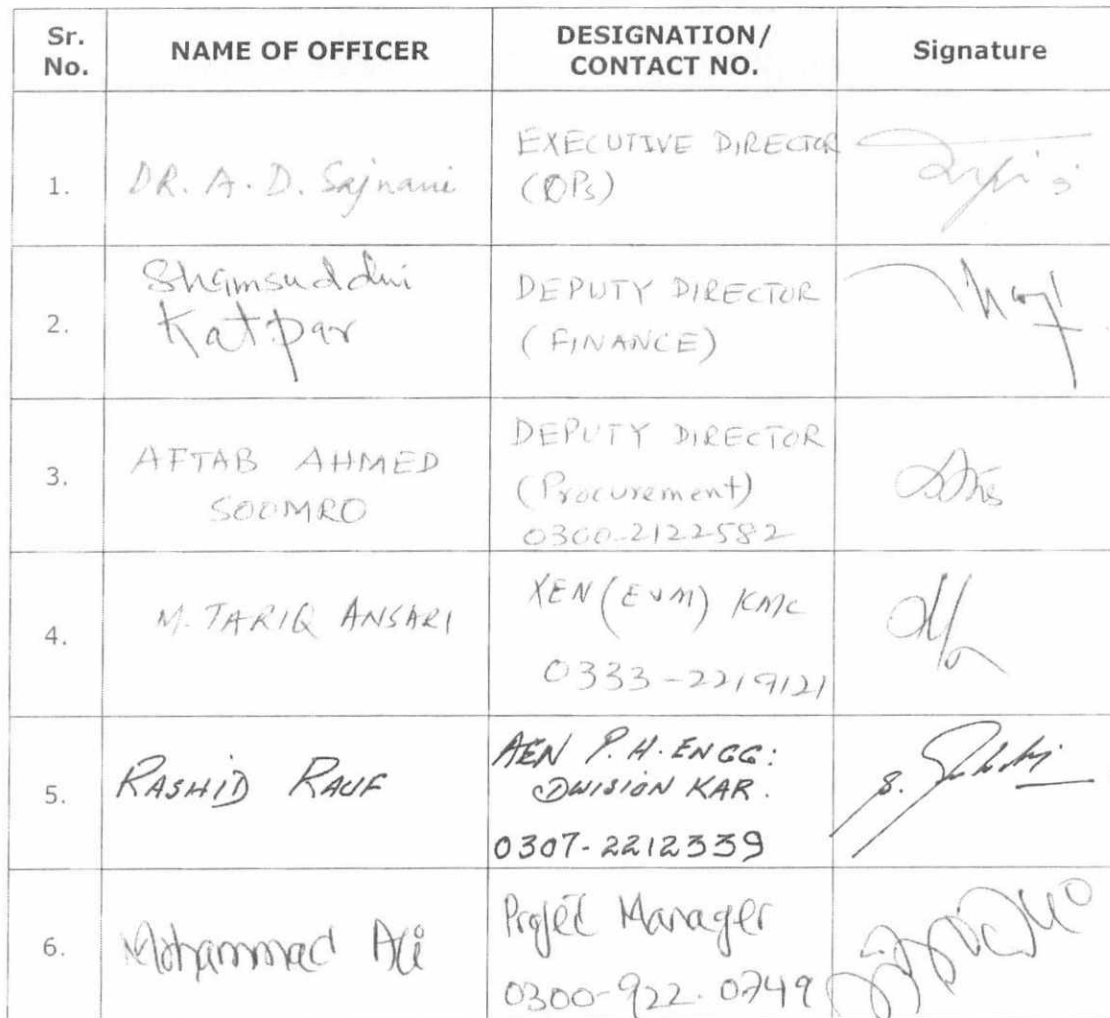 Sr. No.
NAME OF OFFICER
DESIGNATION/
CONTACT NO.
Signature
1.
DR. A. D. Sajnani
EXECUTIVE DIRECTOR
(OPs)
2.
Shamsuddin
Katpar
DEPUTY DIRECTOR
(FINANCE)
3.
AFTAB AHMED
SOOMRO
DEPUTY DIRECTOR
(Procurement)
0300-2122582
4.
M. TARIQ ANSARI
XEN (E&M) KMC
0333-2219121
5.
RASHID RAUF
AEN P.H. ENGG:
DIVISION KAR.
0307-2212339
6.
Mohammad Ali
Project Manager
0300-922-0749